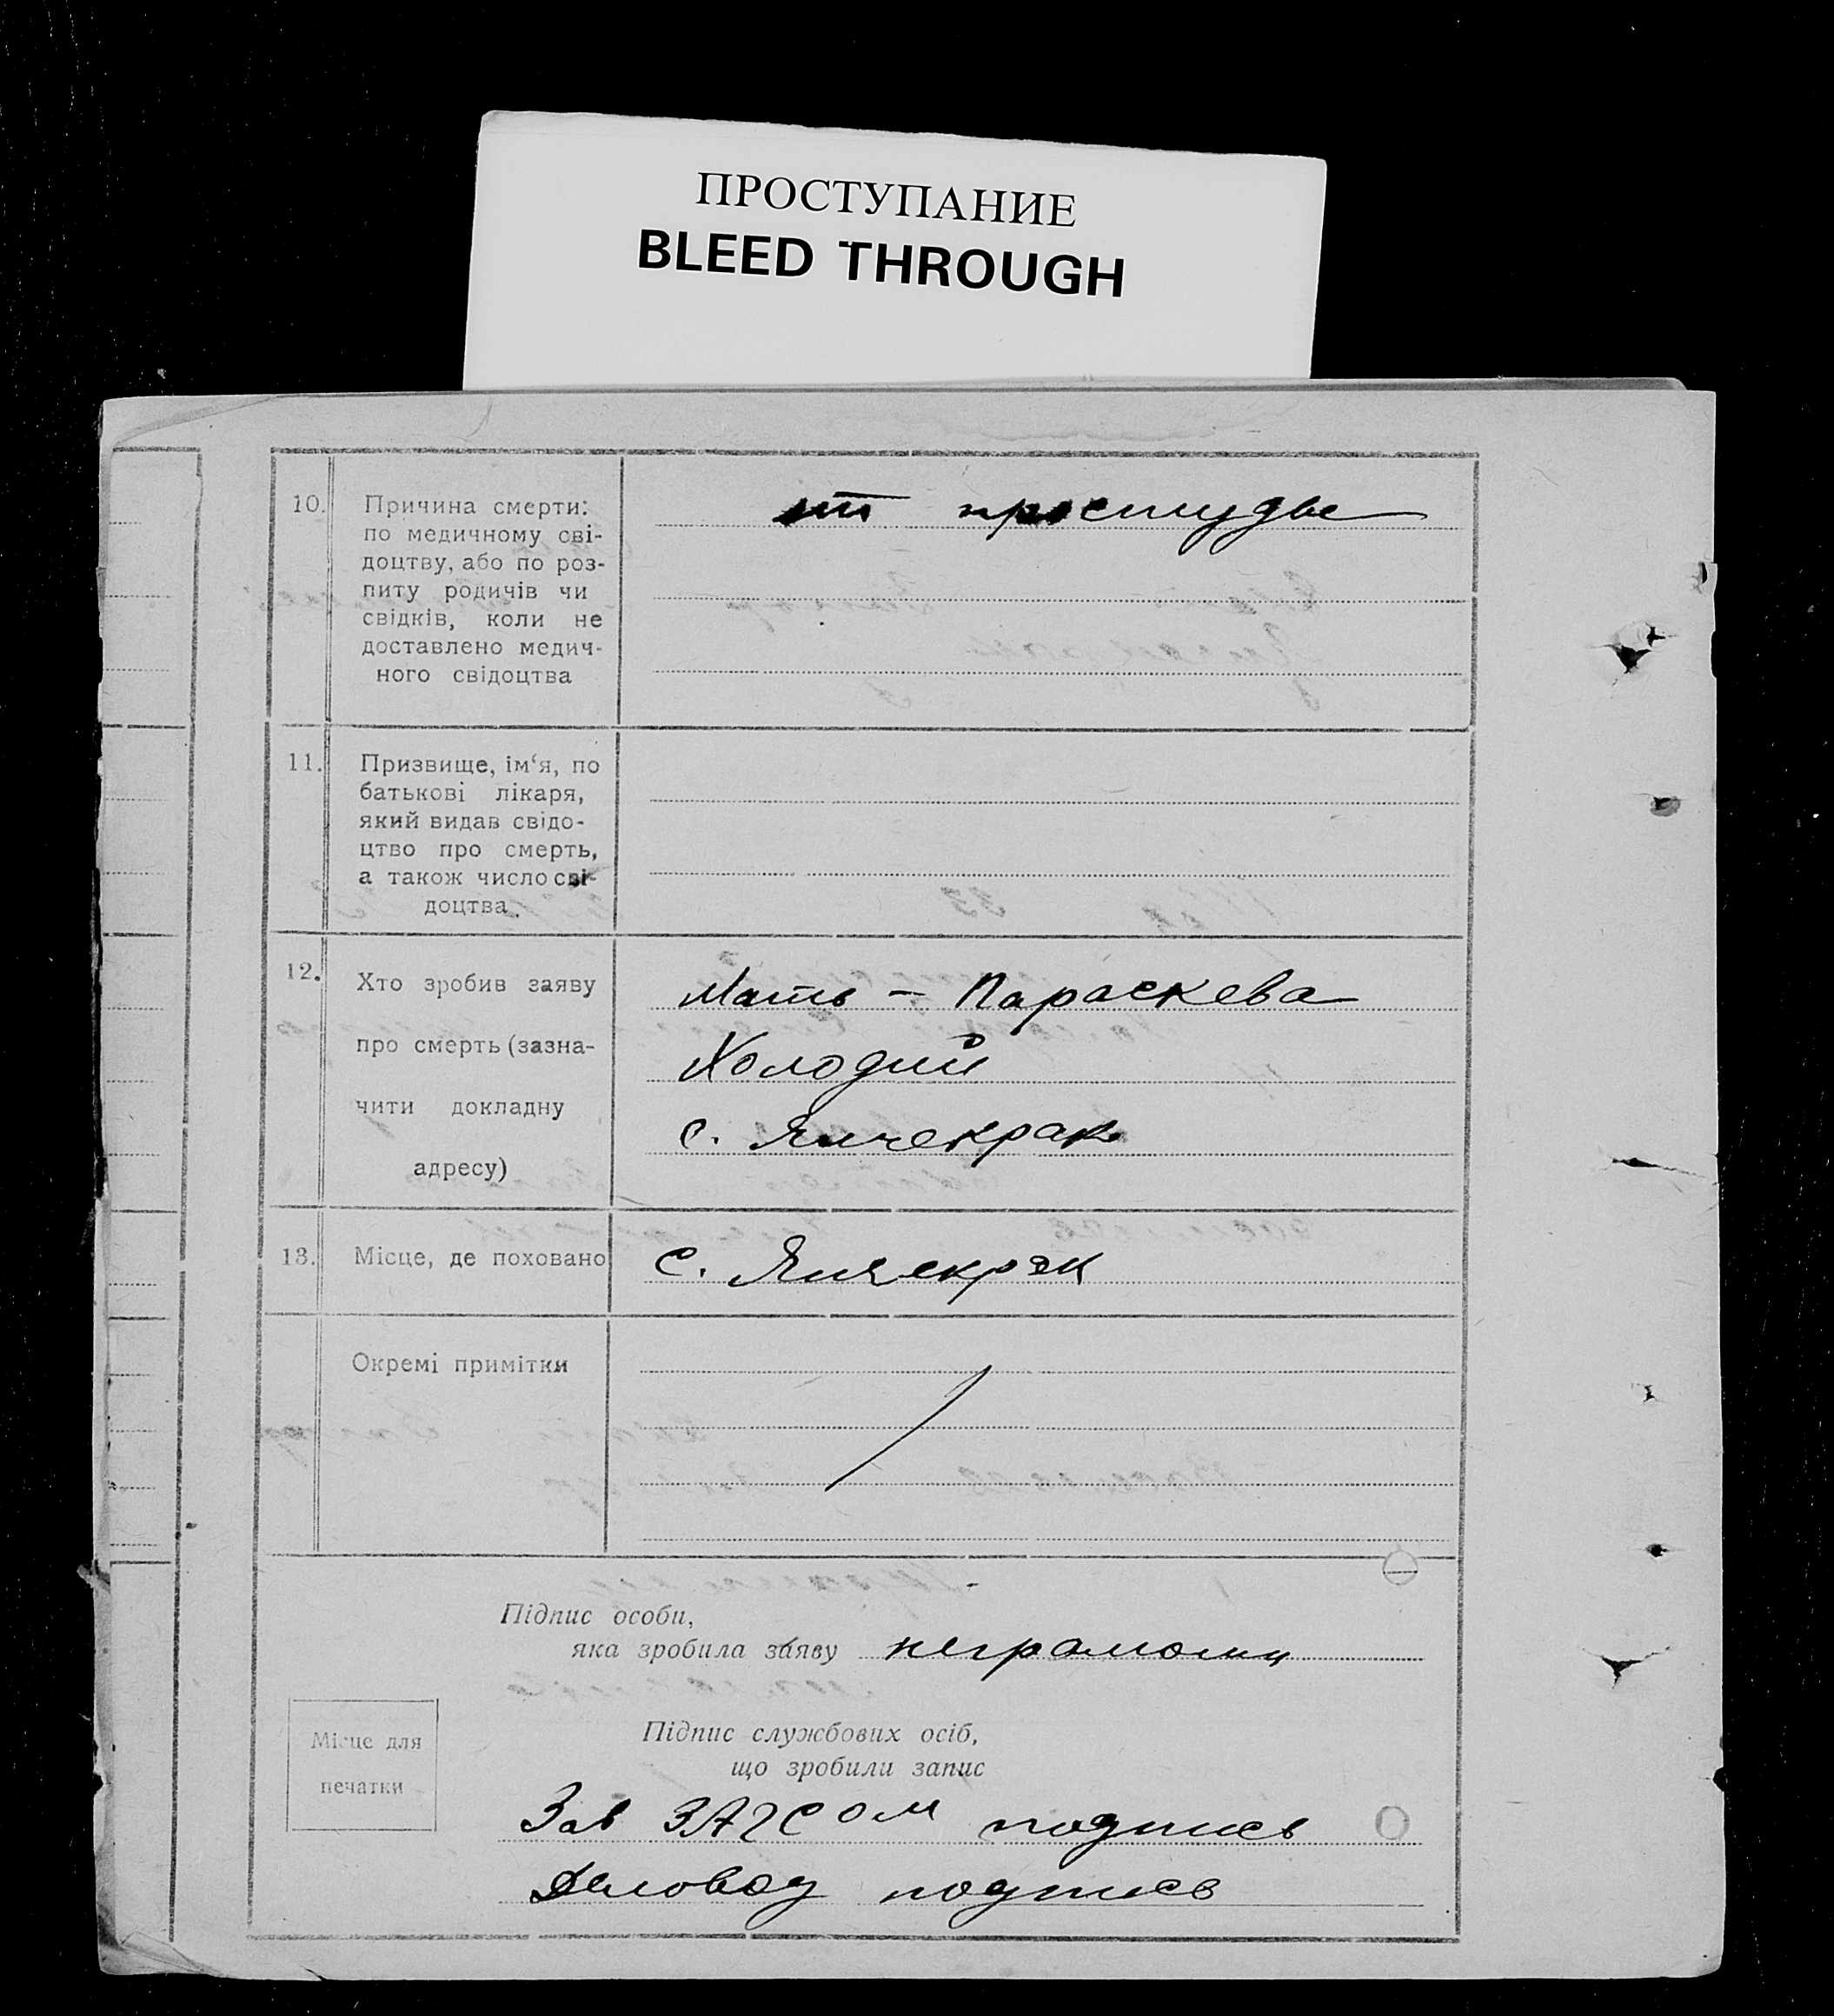 ПРОСТУПАНИЕ
BLEED THROUGH
10.
Причина смерти:
по медичному сві-
доцтву, або по роз-
питу родичів чи
свідків, коли не
доставлено медич-
ного свідоцтва
от простуды
11.
Призвище, ім‘я, по
батькові лікаря,
який видав свідо-
цтво про смерть,
а також число сві-
доцтва.
12.
Хто зробив заяву
про смерть (зазна-
чити докладну
адресу)
Мать - Параскева
Холодий
с. Янчекрак
13.
Місце, де поховано
с. Янчекрак
Окремі примітки
Підпис особи,
яка зробила заяву неграмотн
Місце для
печатки
Підпис службових осіб,
що зробили запис
Зав ЗАГСом подпись
Деловод подпись